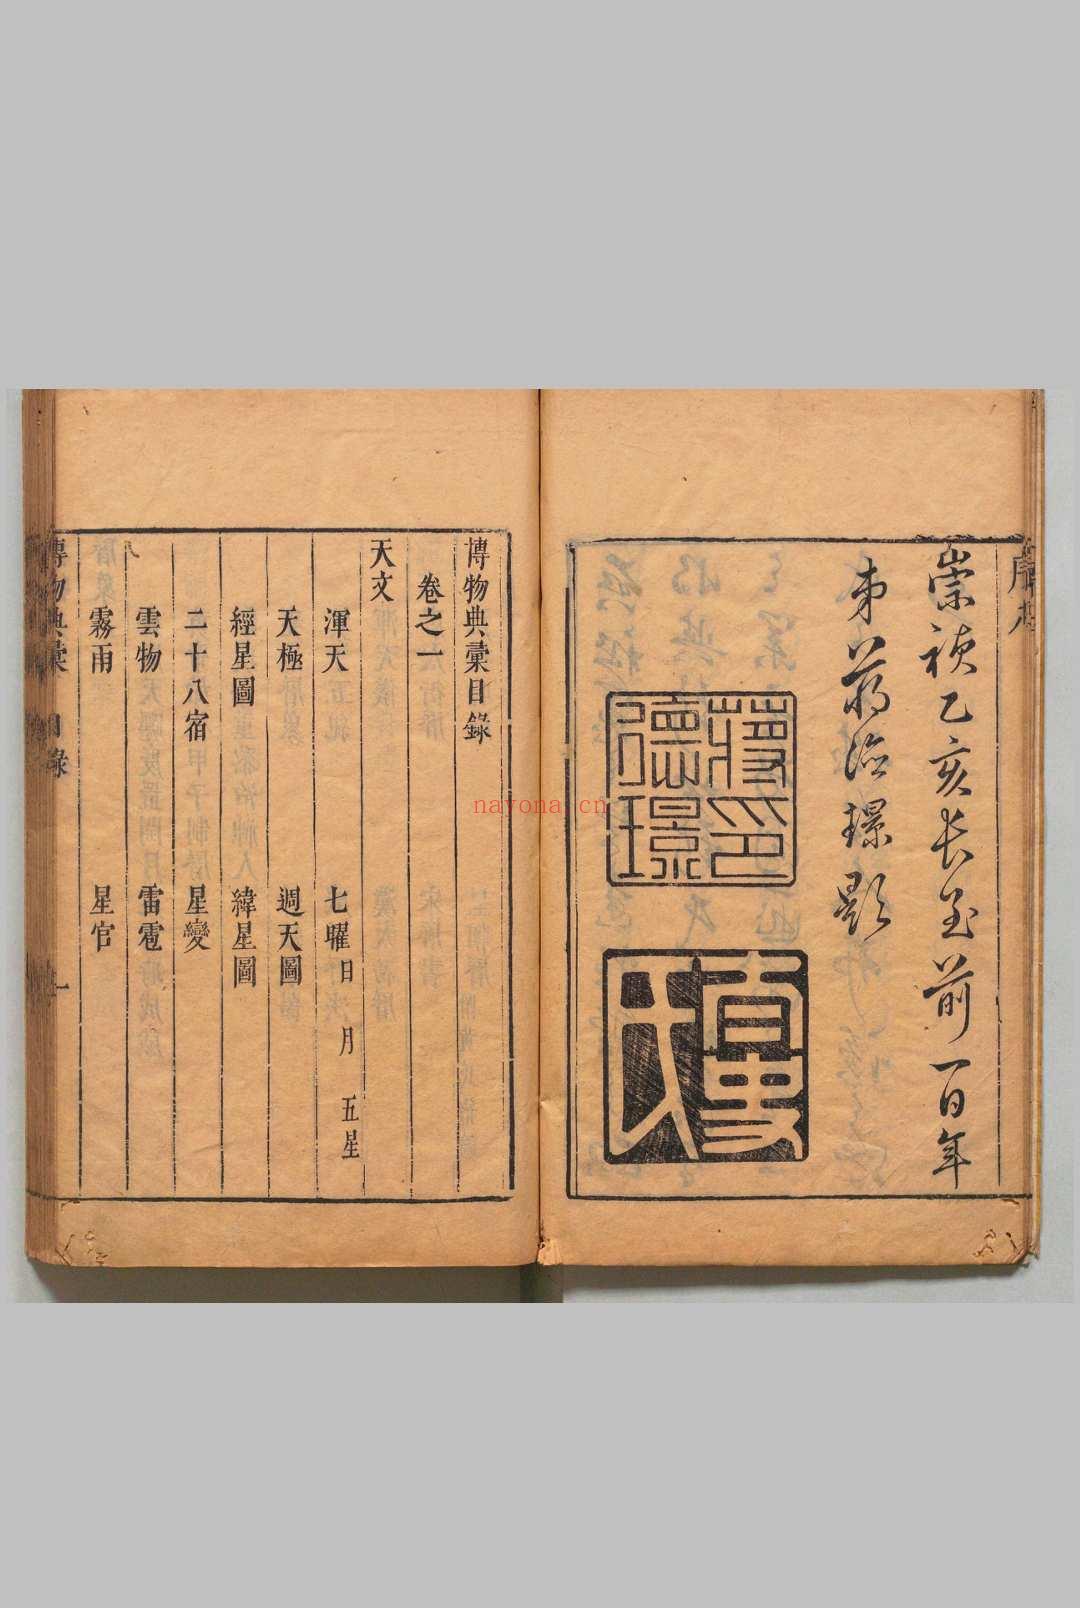 序
崇禎乙亥長至前一日年
弟蔣德璟題
蔣印
德璟
博物典彙目錄
卷之一
天文
渾天 七曜 日 月 五星
天極 週天圖
經星圖 緯星圖
二十八宿 星變
雲物 雷雹
霧雨 星官
博物典彙 目錄 一
nayona.cn